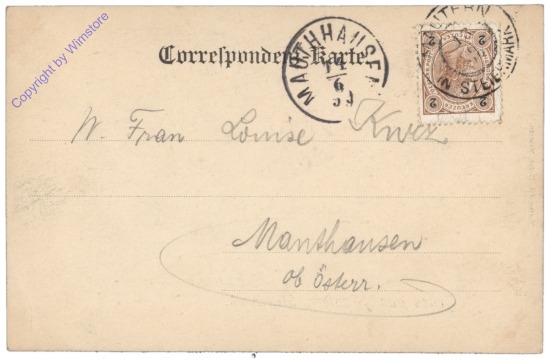 Copyright by Wimstore
Correspondenz-Karte
MAUTHHAUSEN
14
6
2
2
2
2
IN STEIERMARK
Fran Louise
Mauthausen
ob Österr.